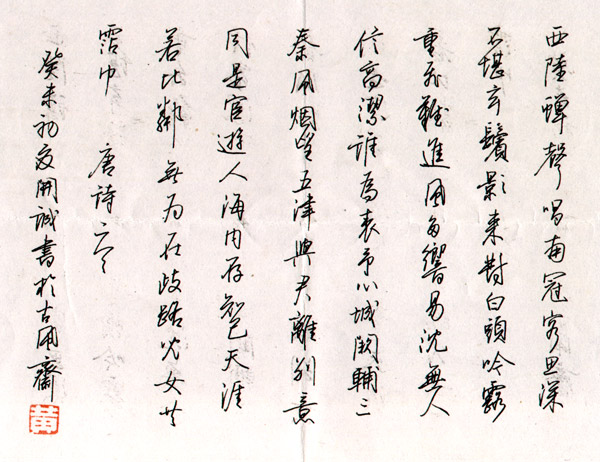 西陸蟬聲唱南冠客思深
不堪玄鬢影來對白頭吟露
重飛難進風多響易沈無人
信高潔誰為表予心城闕輔三
秦風烟望五津與君離別意
同是宦遊人海内存知己天涯
若比鄰無為在歧路兒女共
霑巾 唐詩二首
癸未初夏開誠書於古風齋
黄